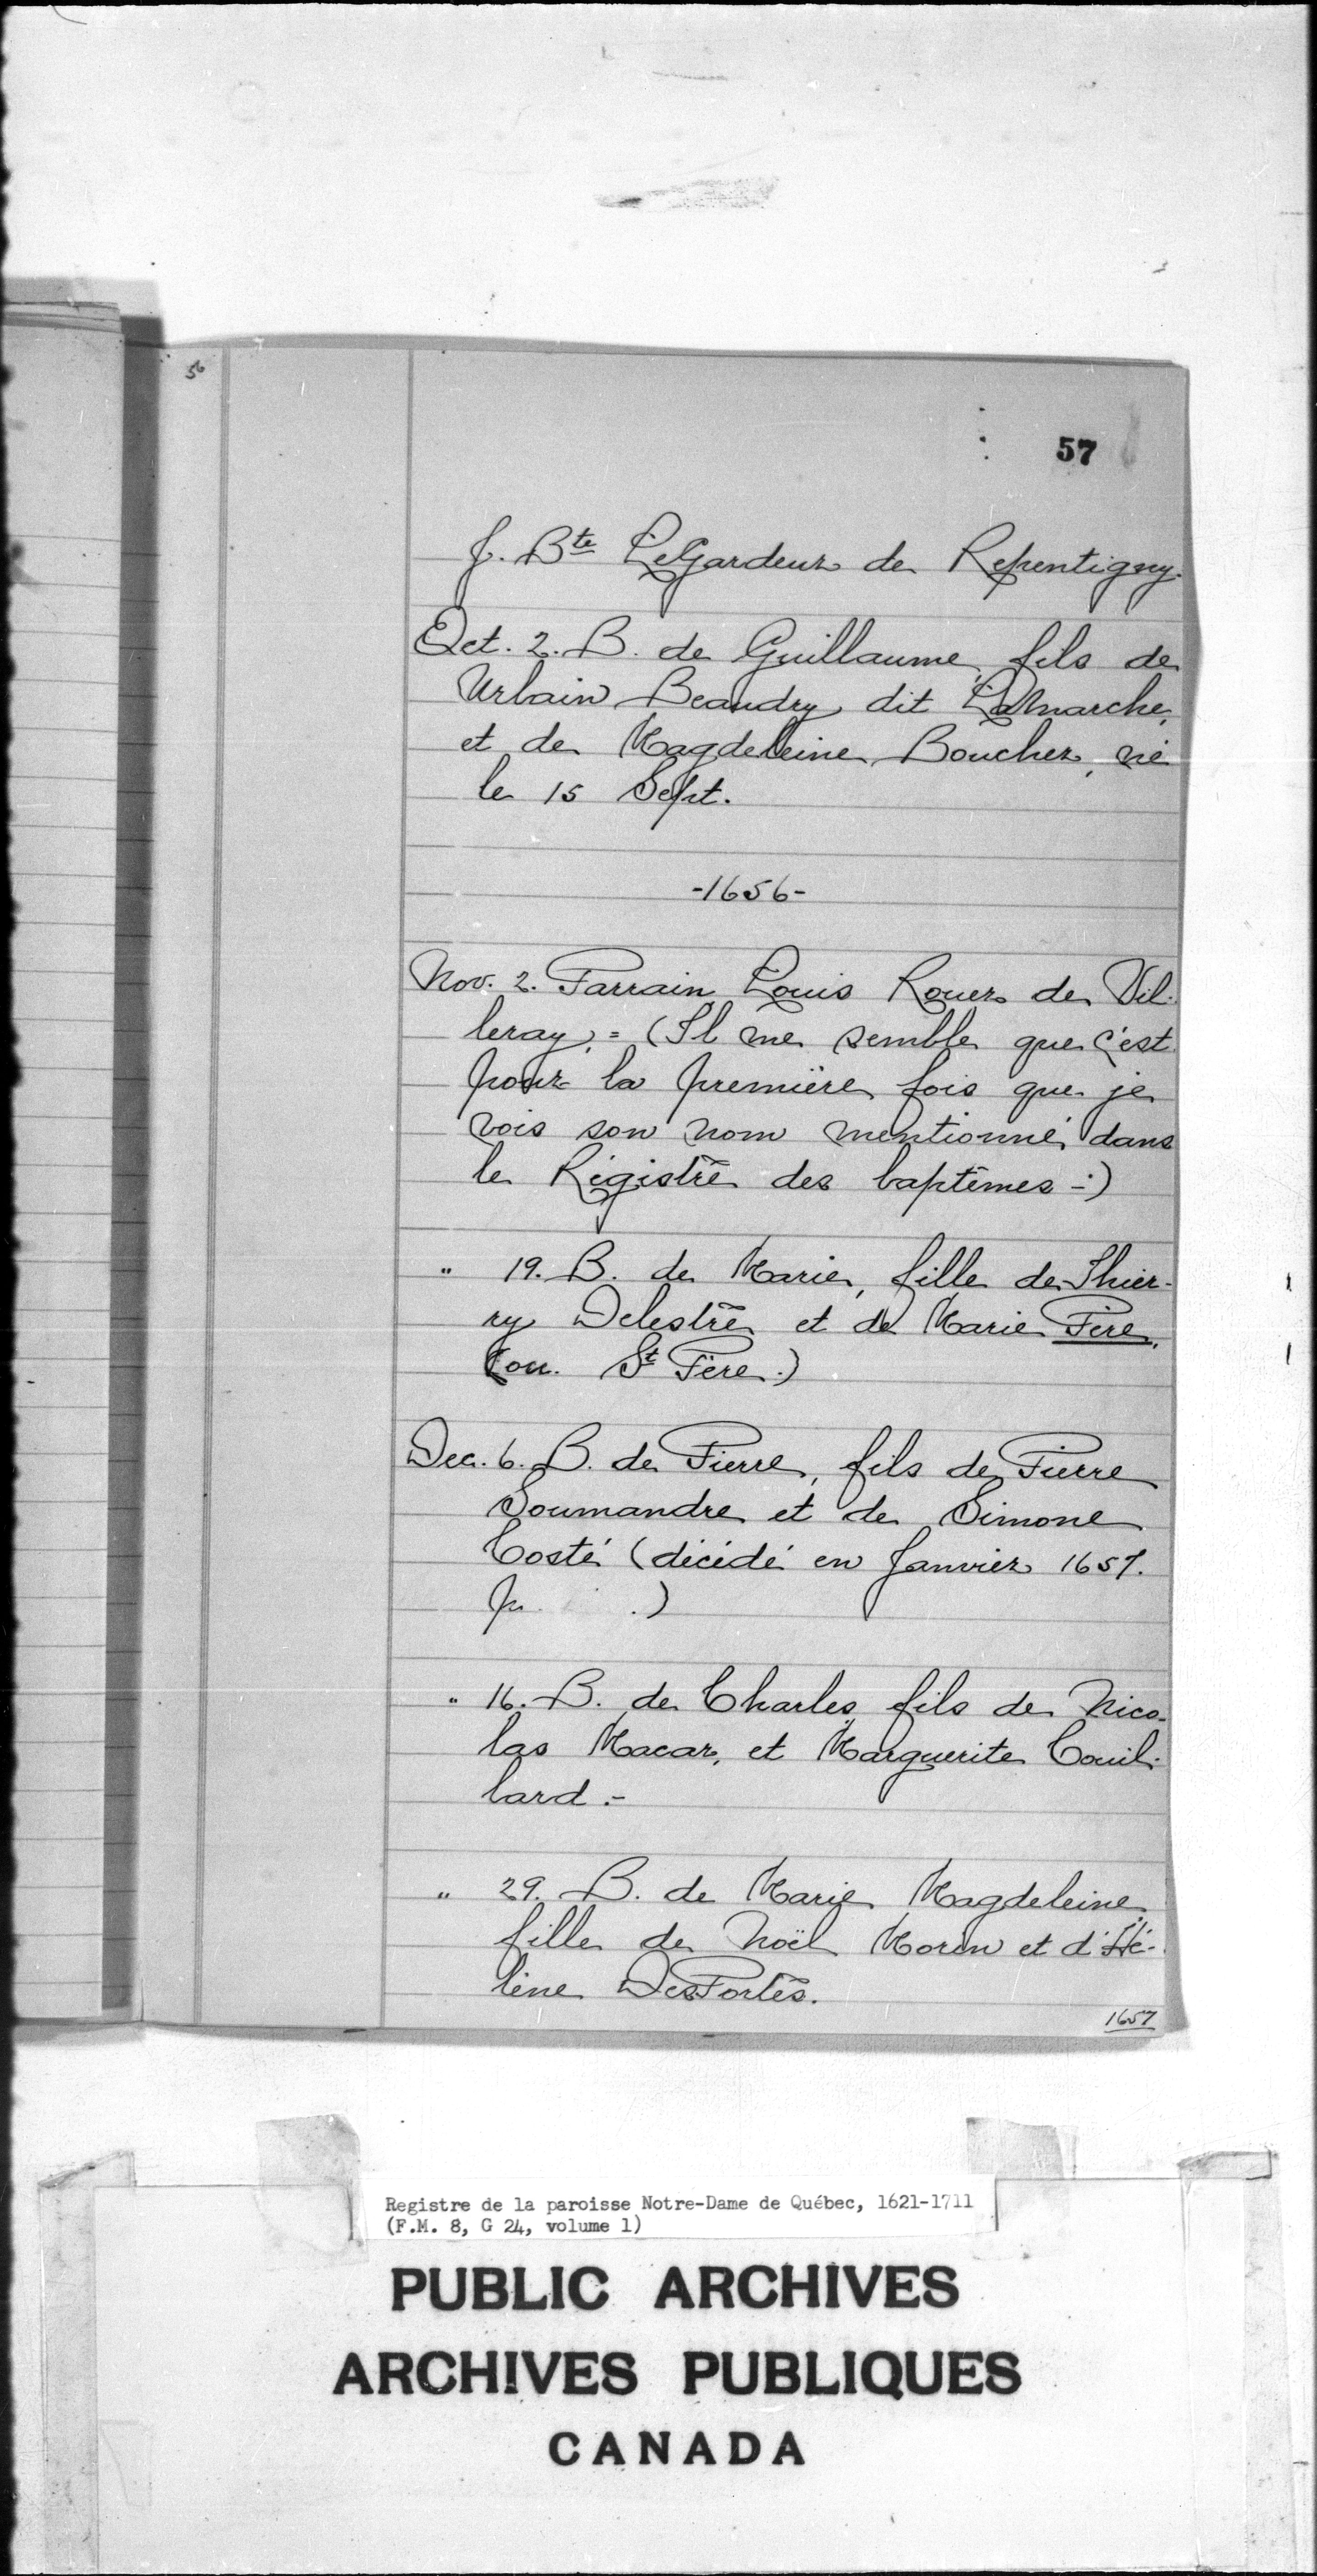 56
57
J. Bte LeGardeur de Repentigny.
Oct. 2. B. de Guillaume, fils de
Urbain Beaudry dit LaMarche,
et de Magdeleine Boucher, né
le 15 Sept.
-1656-
Nov. 2. Parrain Louis Rouer de Vil-
leray, = (Il me semble que c'est
pour la première fois que je
vois son nom mentionné dans
le Régistre des baptêmes -:)
" 19. B. de Marie, fille de Thier-
ry Delestre et de Marie Père,
(ou St Père.)
Dec. 6. B. de Pierre, fils de Pierre
Soumandre et de Simone
Costé (décédé en Janvier 1657.
p. .)
" 16. B. de Charles, fils de Nico-
las Macar, et Marguerite Couil-
lard.-
" 29. B. de Marie Magdeleine,
fille de Noël Morin et d'Hé-
lène DesPortes.
1657
Registre de la paroisse Notre-Dame de Québec, 1621-1711
(F.M. 8, G 24, volume 1)
PUBLIC ARCHIVES
ARCHIVES PUBLIQUES
CANADA